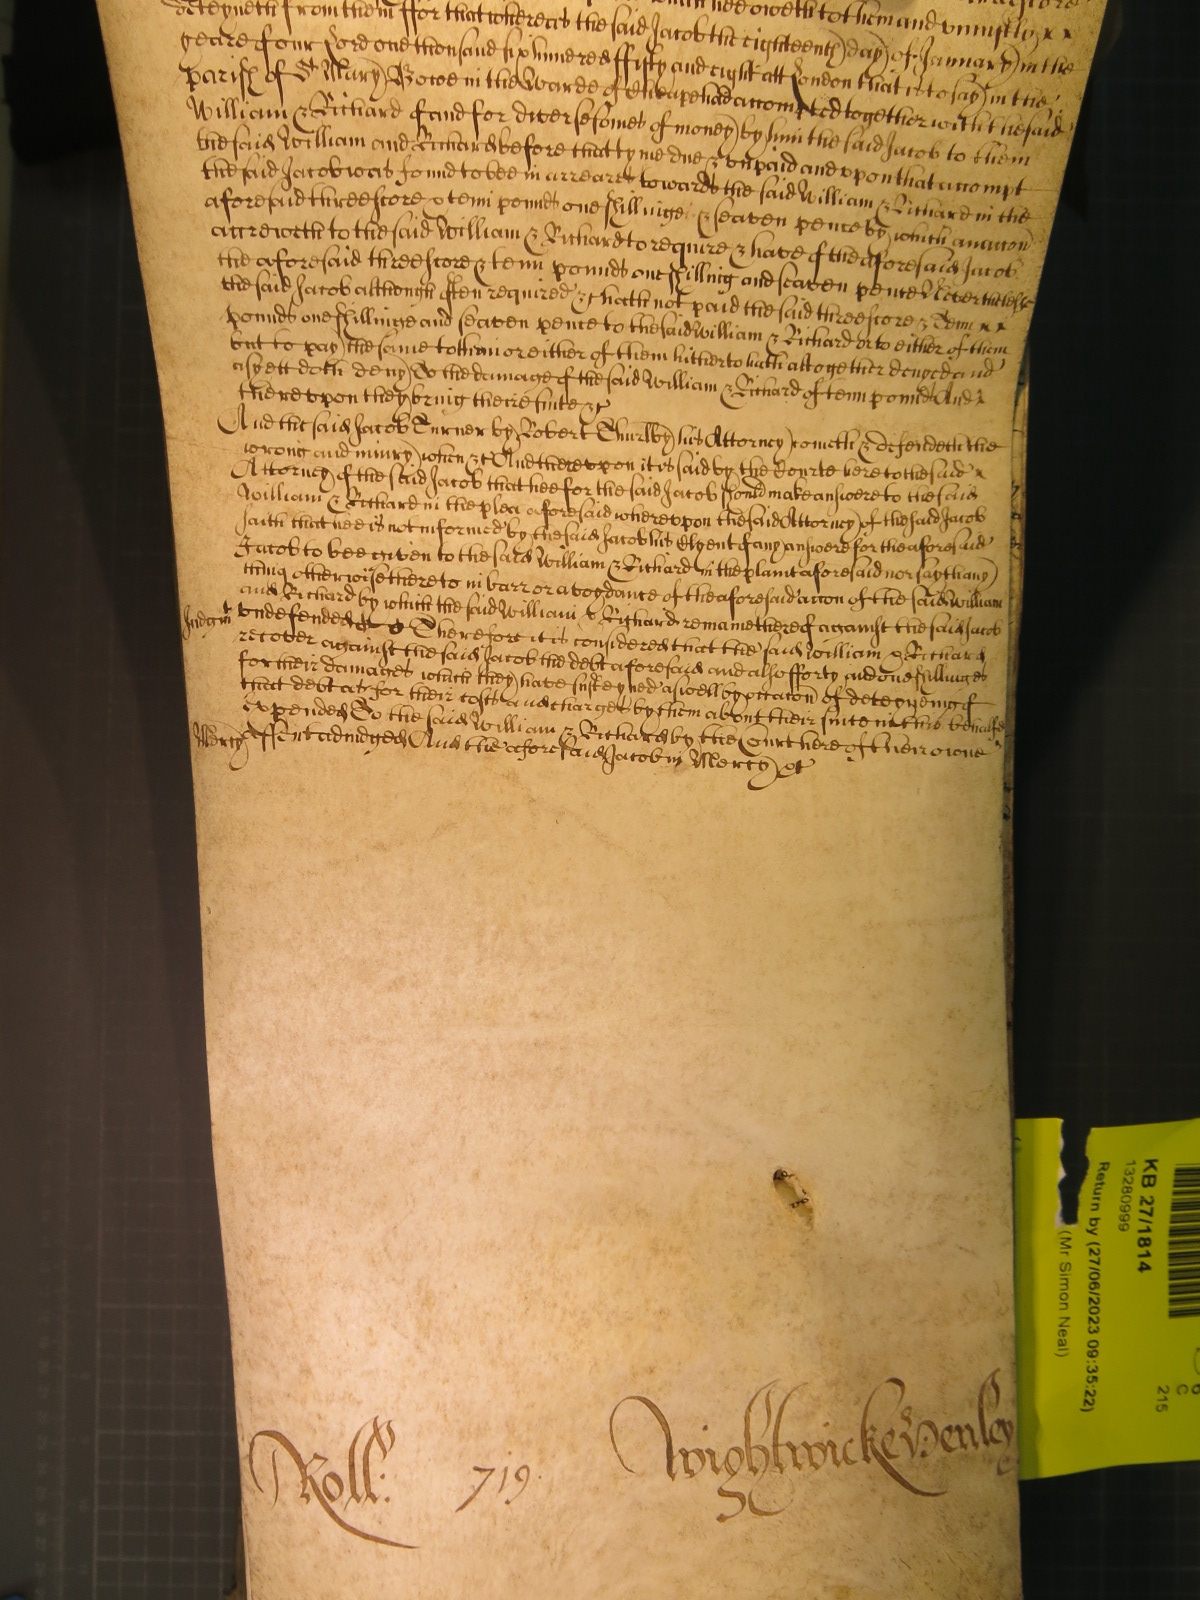 deteyneth from them ffor that whereas the said Jacob the eighteenth day of January in the
yeare of our Lord one thousand six hundred ffifty and eight att London that is to say in the
parish of St Mary Bowe in the Warde of Cheape had accompted together with the said
William & Richard of and for diverse somes of money by him the said Jacob to them
the said William and Richard before that tyme due & unpaid and upon that accompt
the said Jacob was found to bee in arreare towards the said William & Richard in the
aforesaid threescore & tenn pounds one shillinge & seaven pence by which an accon
accreweth to the said William & Richard to require & have of the aforesaid Jacob
the aforesaid threescore & tenn pounds one shilling and seaven pence Neverthelesse
the said Jacob although often required &c hath not paid the said threescore & Tenn
pounds one shillinge and seaven pence to the said William & Richard or to either of them
but to pay the same to them or either of them hitherto hath altogether denyed and
as yett doth deny To the damage of the said William & Richard of tenn pounds And
thereupon they bring theire suite &c
And the said Jacob Turner by Robert Thurlby his Attorney cometh & defendeth the
wrong and iniury when &c And thereupon it is said by the Courte here to the said
Attorney of the said Jacob that hee for the said Jacob should make answere to the said
William & Richard in the plea aforesaid whereupon the said Attorney of the said Jacob
saith that hee is not informed by the said Jacob his Clyent of any answere for the aforesaid
Jacob to bee given to the said William & Richard in the plaint aforesaid nor say thany
thing otherwise thereto in barr or avoydance of the aforesaid accon of the said William
and Richard by which the said William & Richard remaine thereof against the said Jacob
Judgmt undefended Therefore it is considered that the said William & Richard
recover against the said Jacob the debt aforesaid and also fforty and one shillinges
for their damages which they have susteyned aswell by occacon of deteyneing of
that debt as for their costs and charges by them about their suite in this behalfe
expended To the said William & Richard by the Court here of their owne
Mercy assent adiudged And the aforesaid Jacob in Mercy &c
Roll: 719 Wightwicke Henley
KB 27/1814
13280999
Return by (27/06/2023 09:35:22)
(Mr Simon Neal)
C
215